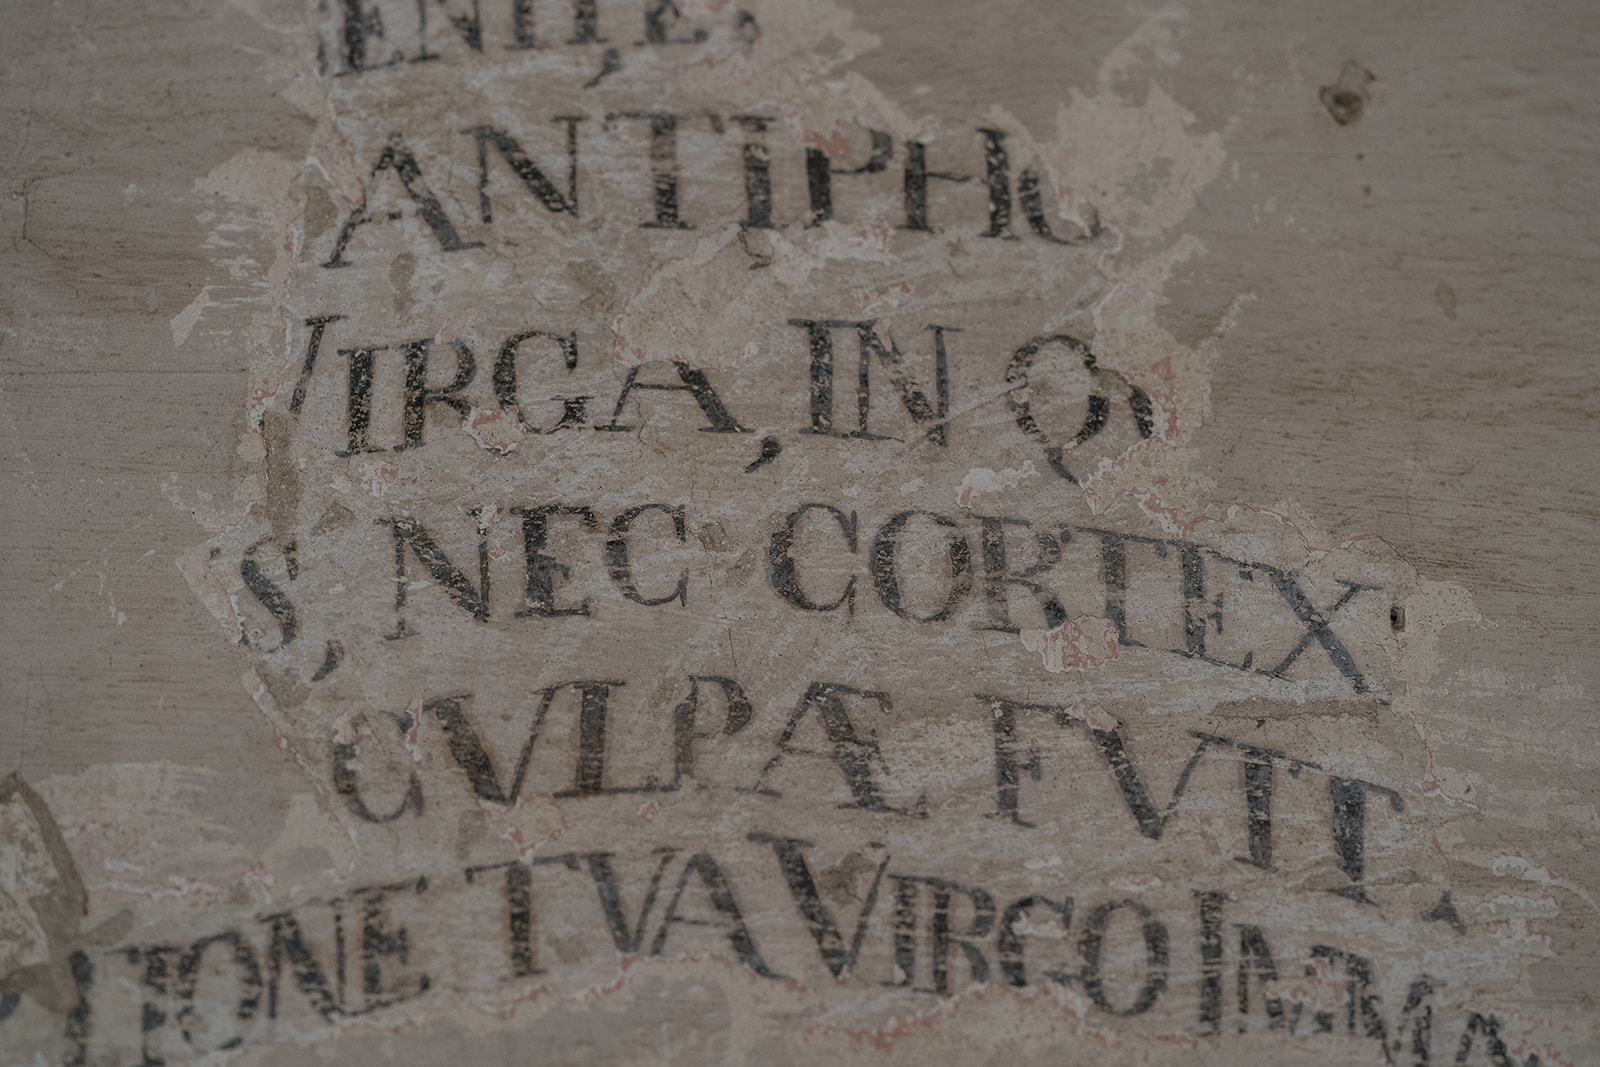 ENITE,
ANTIPHO
VIRGA, IN Q
S, NEC CORTEX
CVLPÆ FVIT,
TIONE TVA VIRGO IMMA